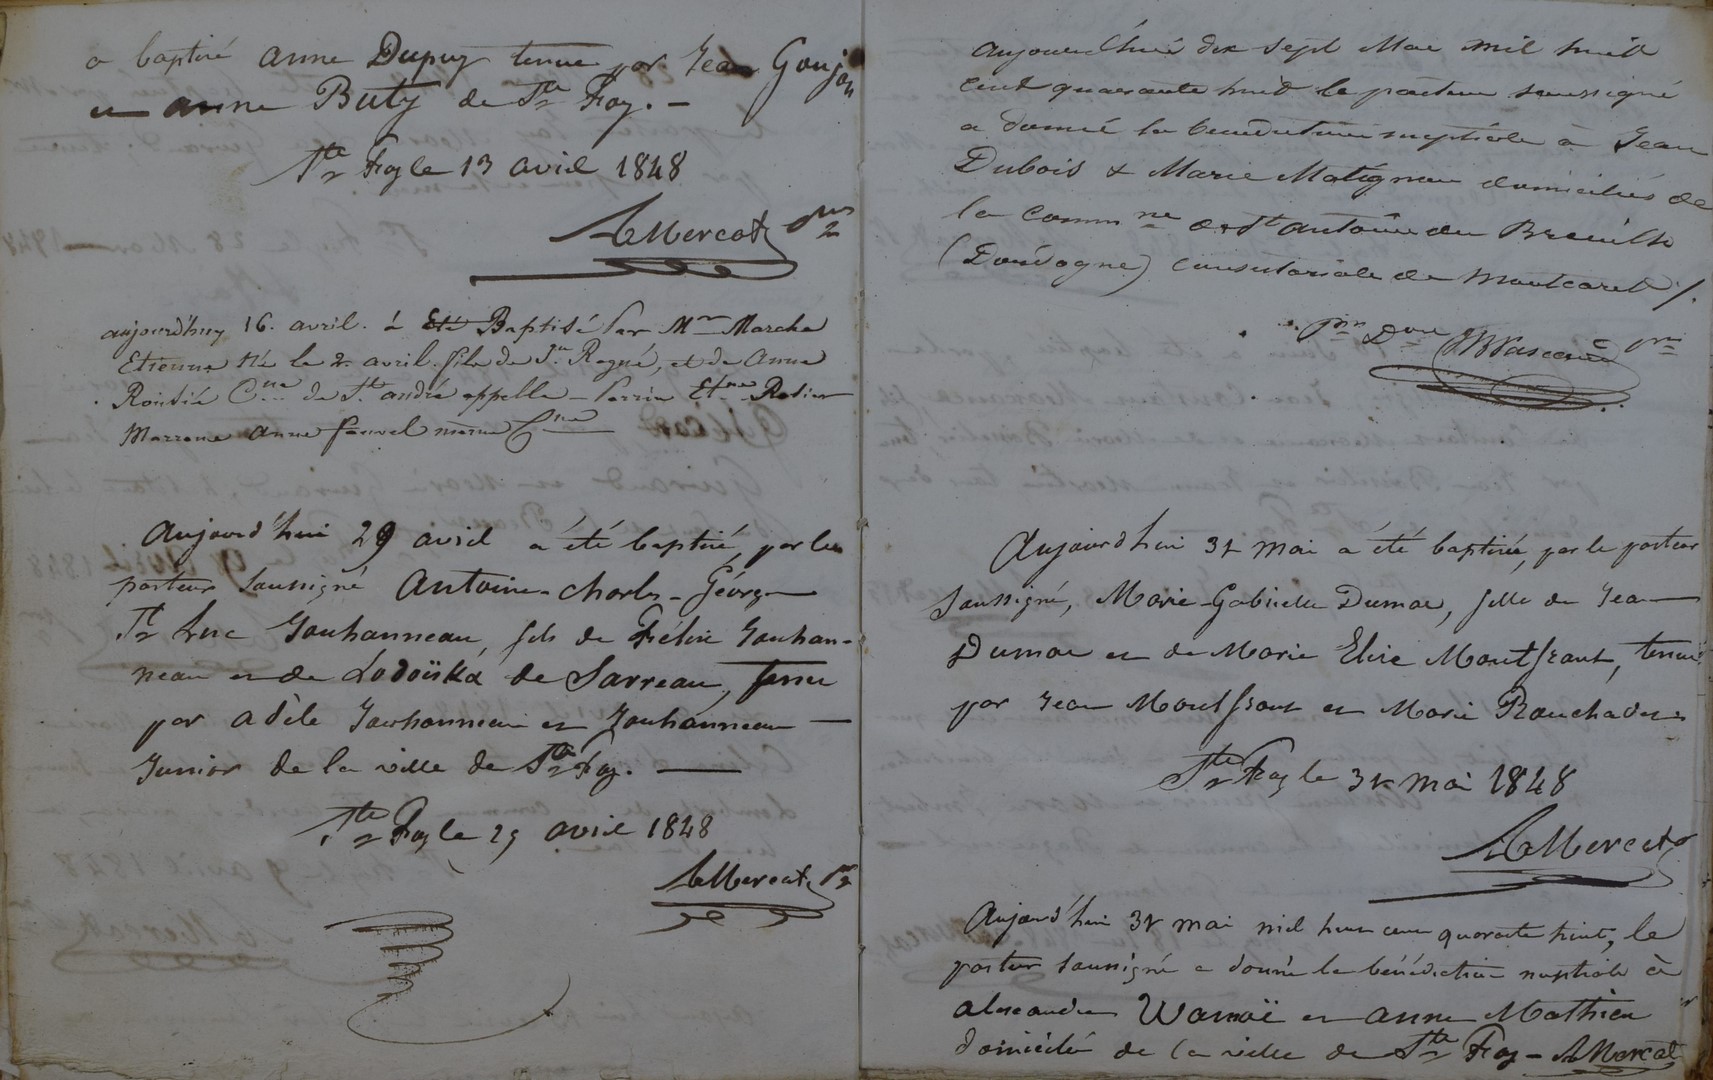 a baptisé anne Dupuy tenue par Jean Goujon
et anne Buty de Ste Foy. -
Ste Foy le 13 avril 1848
A Mercat
aujourd'huy 16. avril. à Eté Baptisé Par Mr
Etienne Né le 2. avril. fils de Jn Ragné, et de anne
Cne de St andré appelle - Etne
Marrene anne fauvel même Cne
Aujourd'hui 29 avril a été baptisé, par le
pasteur soussigné Antoine-Charles-Géorge
St Luc Jouhanneau, fils de Félix Jouhan-
neau et de Lodoïska de Sarreau, tenu
par adèle Jouhanneau et Jouhanneau -
Junior de la ville de Ste Foy. -
Ste Foy le 29 avril 1848
A Mercat
aujourd'hui dix sept Mai mil huit
cent quarante huit le pasteur soussigné
a donné la bénédiction nuptiale à Jean
Dubois & Marie Matignon domiciliés de
la Commne de St antoine du Breuilh
(Dordogne) consistoriale de Montcaret /.
Aujourd'hui 31 mai a été baptisée, par le pasteur
soussigné, Marie-Gabrielle Dumas, fille de Jean
Dumas et de Marie Elise Montfront, tenue
par Jean Montfront et Marie
Ste Foy le 31 mai 1848
A Mercat
Aujourd'hui 31 mai mil huit cent quarante huit, le
pasteur soussigné a donné la bénédiction nuptiale à
alexandre et anne Mathieu
domicilié de la ville de Ste Foy - A Mercat